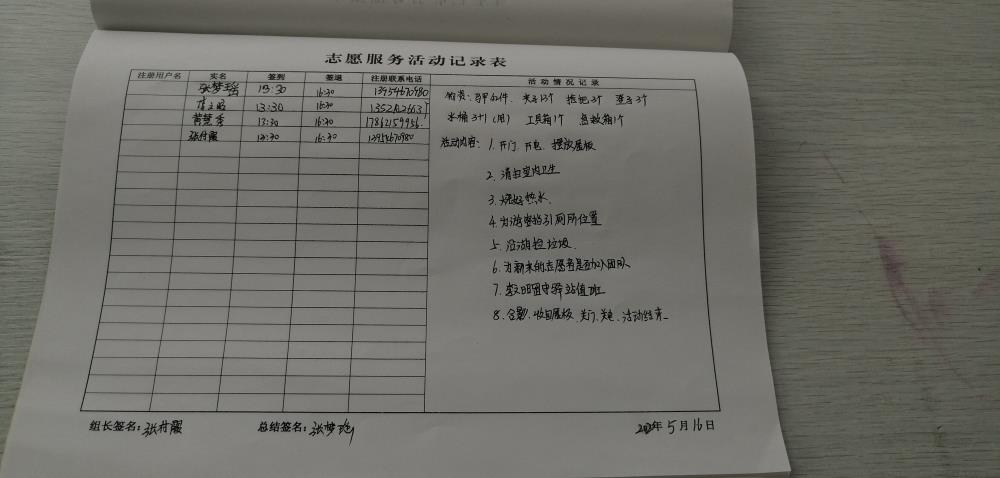 志愿服务活动记录表
注册用户名 实名 签到 签退 注册联系电话 活动情况记录
张梦瑶 13:30 16:30 13954670980
13:30 16:30
13:30 16:30 17862159956
13:30 16:30 13954670980
物资：马甲 夹子13个 3个 3个
水桶3+1（用） 工具箱1个 急救箱1个
活动内容：1. 开门、开电、摆放展板
2. 清扫室内卫生
3. 烧好热水
4. 为游客指引厕所位置
5. 沿湖捡垃圾
6. 为新来的志愿者 加入团队
7. 留守驿站值班
8. 合影、收回展板、关门、关电、活动结束
组长签名： 总结签名：张梦瑶 年5月16日